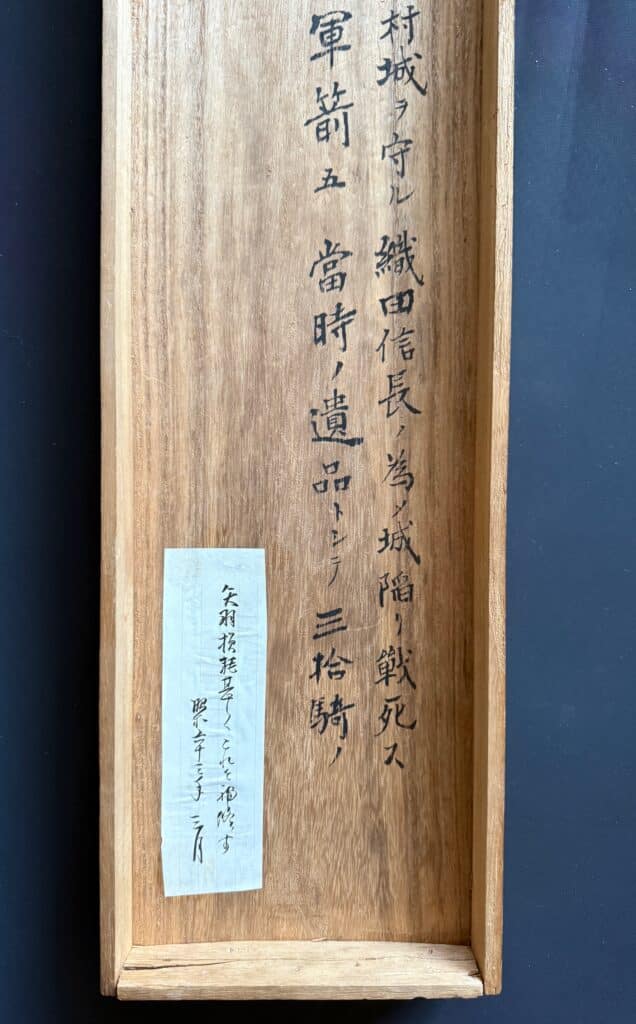 村城ヲ守ル織田信長ノ為メ城陥リ戦死ス
軍箭五 當時ノ遺品トシテ三拾騎ノ
矢羽損耗甚しくこれを補修す
昭和五十三年三月